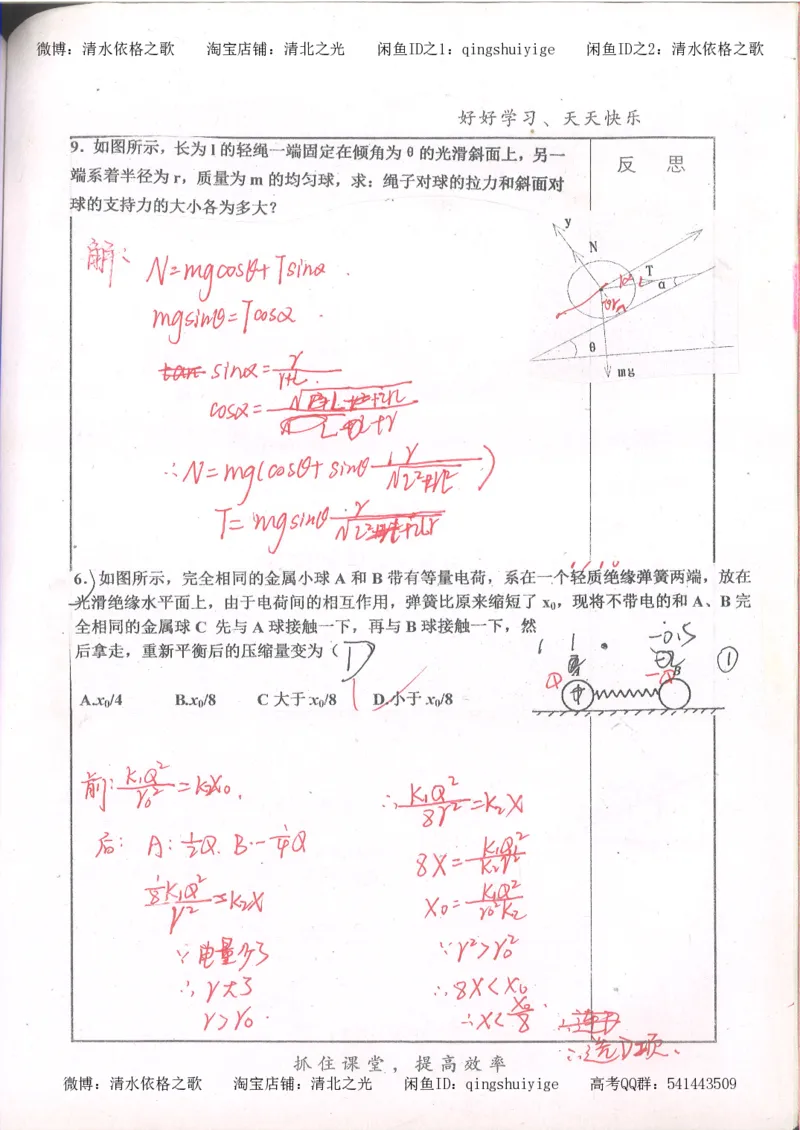 微博：清水依格之歌 淘宝店铺：清北之光 闲鱼ID之1：qingshuiyige 闲鱼ID之2：清水依格之歌
好好学习、天天快乐
9．如图所示，长为 l 的轻绳一端固定在倾角为 θ 的光滑斜面上，另一
端系着半径为 r，质量为 m 的均匀球，求：绳子对球的拉力和斜面对
球的支持力的大小各为多大？
反 思
y
N
T
α
θ
mg
解：
N=mgcosθ+Tsinα
mgsinθ=Tcosα
sinα=r/(r+L)
cosα=
∴N=mg(cosθ+sinθ
T=mgsinθ
6．如图所示，完全相同的金属小球 A 和 B 带有等量电荷，系在一个轻质绝缘弹簧两端，放在
光滑绝缘水平面上，由于电荷间的相互作用，弹簧比原来缩短了 x₀，现将不带电的和 A、B 完
全相同的金属球 C 先与 A 球接触一下，再与 B 球接触一下，然
后拿走，重新平衡后的压缩量变为（ D ）
-0.5
①
A.x₀/4 B.x₀/8 C 大于 x₀/8 D.小于 x₀/8
前：K₁Q²/r₀²=K₂X₀.
后：A：½Q. B：-¼Q
⅛K₁Q²/r²=K₂X
∵电量少了
∴r大了
r>r₀.
∴K₁Q²/8r²=K₂X
8X=K₁Q²/K₂r²
X₀=K₁Q²/r₀²K₂
∵r²>r₀²
∴8X<X₀
∴X<X₀/8
∴选D项.
抓住课堂，提高效率
微博：清水依格之歌 淘宝店铺：清北之光 闲鱼ID：qingshuiyige 高考QQ群：541443509